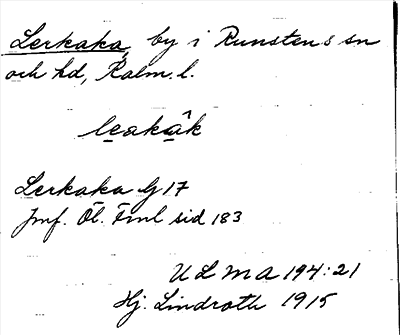 Lerkaka, by i Runstens sn
och hd, Kalm. l.
leakâk
Lerkaka G 17
Jmf. Öl. Fml sid 183
ULMA 194:21
Hj. Lindroth 1915